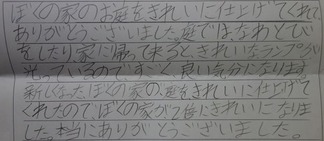 ぼくの家のお庭をきれいに仕上げてくれて、
ありがとうございました。庭では、なわとび
をしたり家に帰って来ると、きれいなランプが
光っているのですごく、良い気分になります
新しくなったぼくの家の、庭をきれいに仕上げて
くれたので、ぼくの家が2倍にきれいになりま
した。本当にありがとうございました。